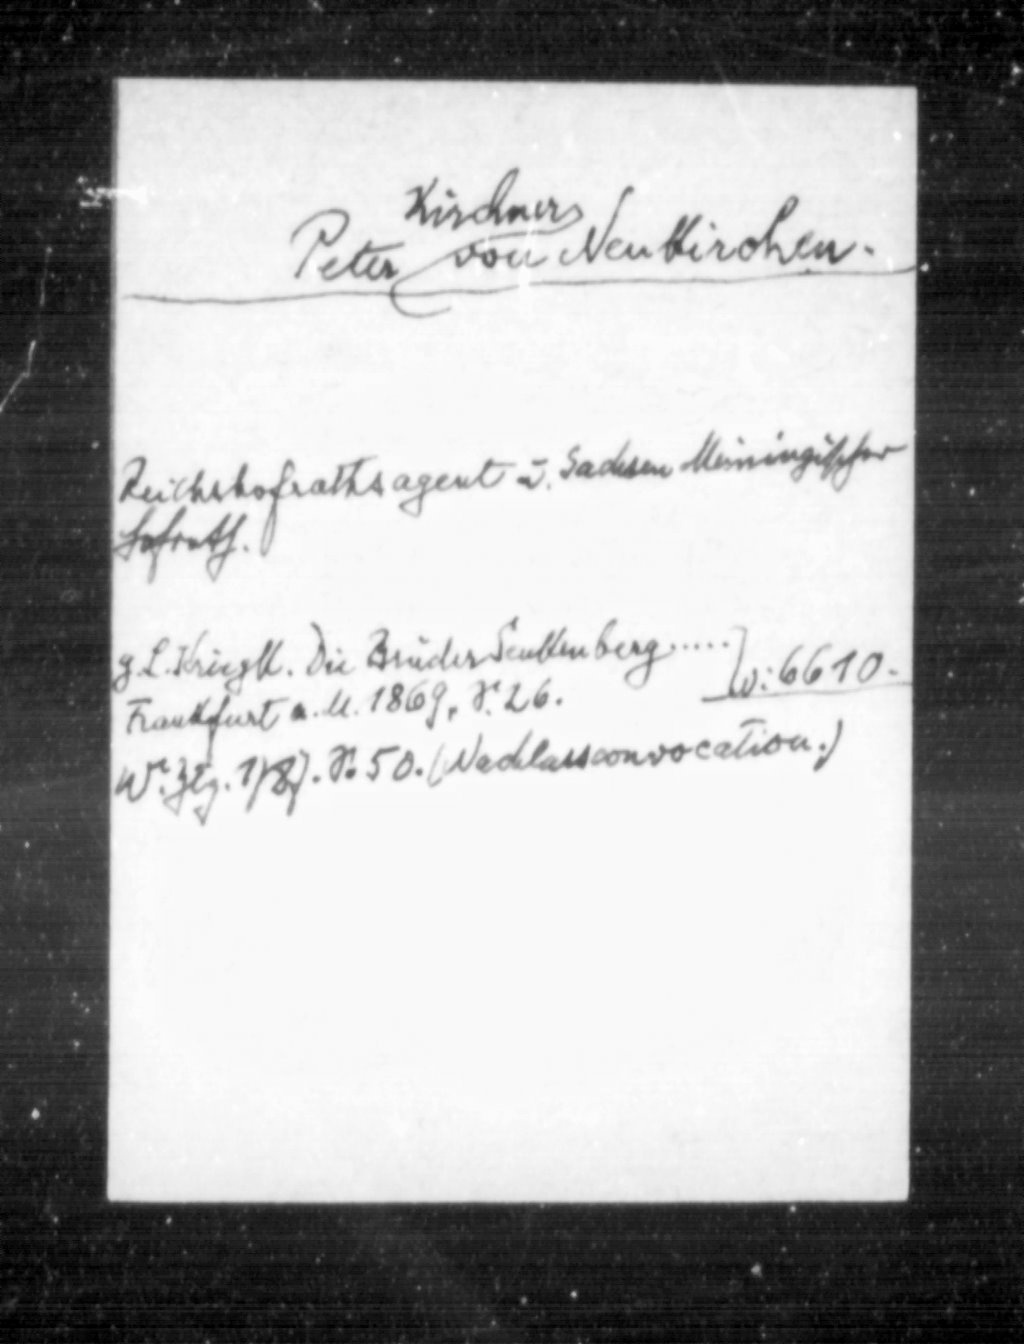 Kirchner
Peter von Neukirchen.
Reichshofrathsagent u. Sachsen Meiningischer
Hofrath.
g. L. Kriegk. Die Brüder Senkenberg.....] W: 6610.
Frankfurt a. M. 1869, S. 26.
Wr. Ztg. 1787. S. 50. (Nachlassconvocation.)